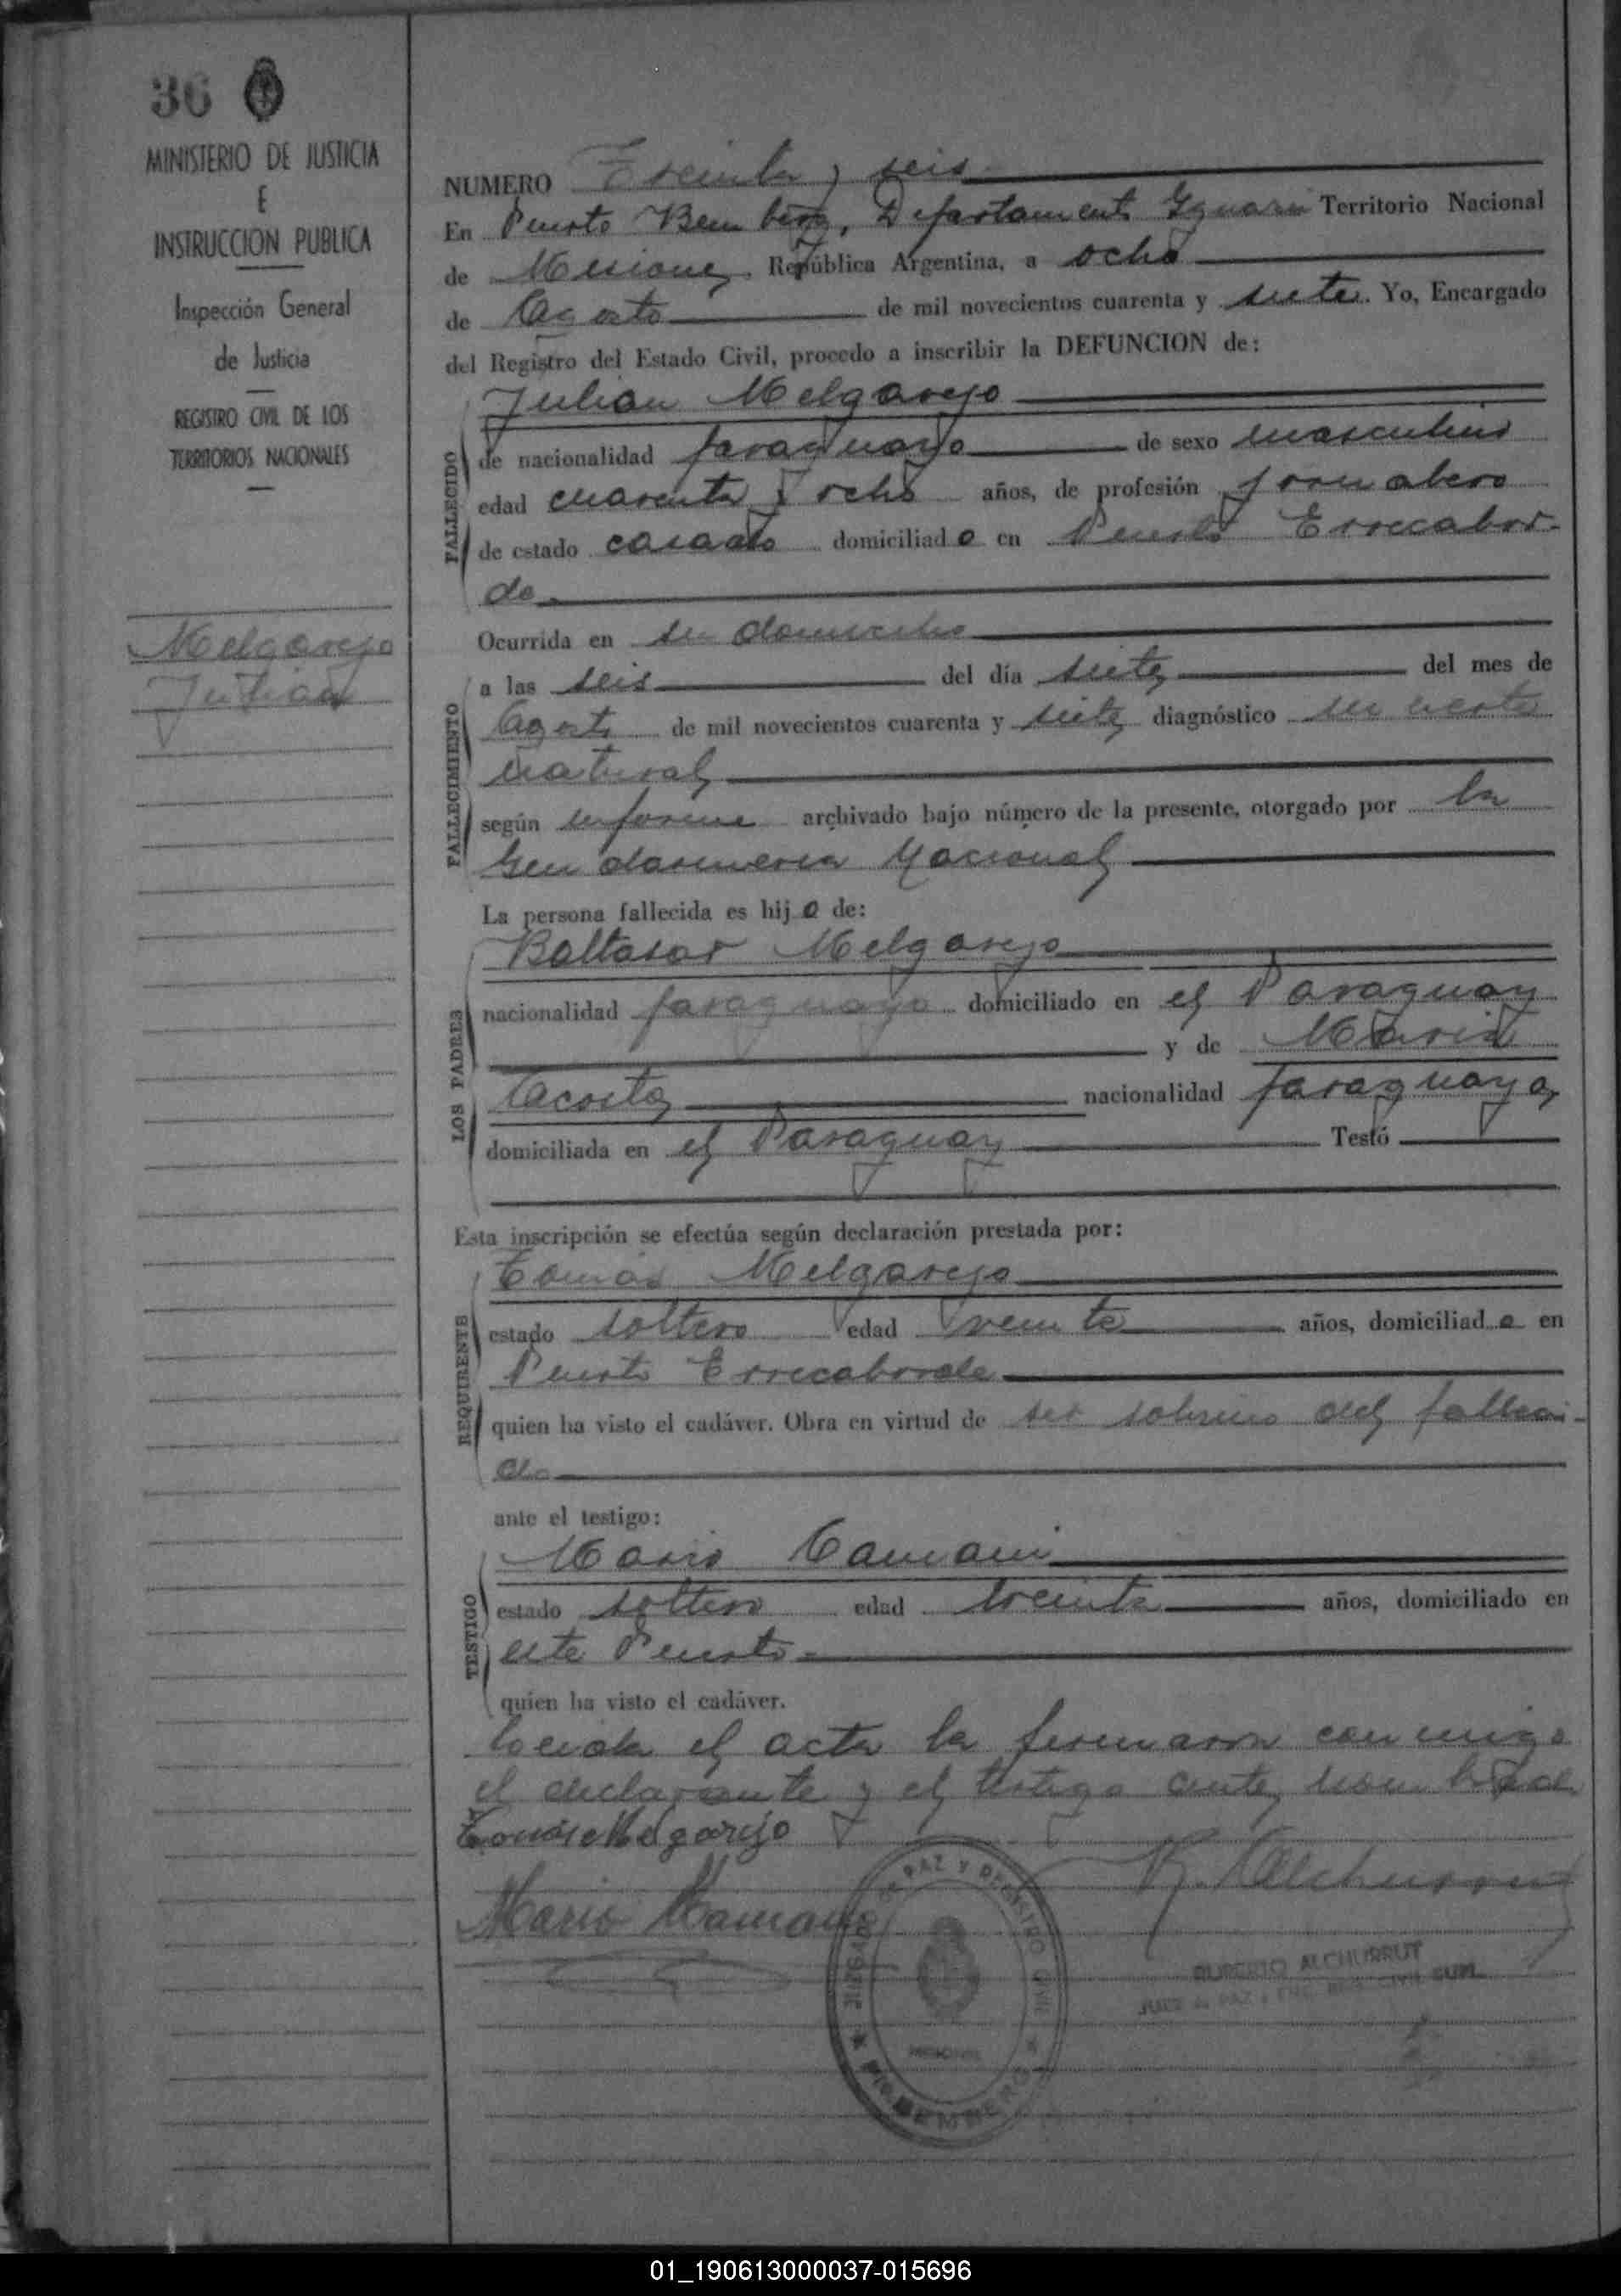 36
MINISTERIO DE JUSTICIA
E
INSTRUCCION PUBLICA
Inspección General
de Justicia
REGISTRO CIVIL DE LOS
TERRITORIOS NACIONALES
Melgarejo
Julian
NUMERO Treinta y seis
En Puerto Bemberg, Departamento Iguazú Territorio Nacional
de Misiones, República Argentina, a ocho
de Agosto de mil novecientos cuarenta y siete. Yo, Encargado
del Registro del Estado Civil, procedo a inscribir la DEFUNCION de:
FALLECIDO
Julian Melgarejo
de nacionalidad paraguayo de sexo masculino
edad cuarenta y ocho años, de profesión jornalero
de estado casado domiciliado en Puerto Errecabor-
de
FALLECIMIENTO
Ocurrida en su domicilio
a las seis del día siete del mes de
Agosto de mil novecientos cuarenta y siete diagnóstico muerte
natural
según informe archivado bajo número de la presente, otorgado por la
Gendarmeria Nacional
La persona fallecida es hijo de:
LOS PADRES
Baltasar Melgarejo
nacionalidad paraguayo domiciliado en el Paraguay
y de Maria
Acosta nacionalidad paraguaya
domiciliada en el Paraguay Testó
Esta inscripción se efectúa según declaración prestada por:
REQUIRENTE
Tomás Melgarejo
estado soltero edad veinte años, domiciliado en
Puerto Errecaborde
quien ha visto el cadáver. Obra en virtud de ser sobrino del falleci-
do
ante el testigo:
TESTIGO
Mario Mamani
estado soltero edad treinta años, domiciliado en
este Puerto
quien ha visto el cadáver.
Leida el acta la firmaron conmigo
el declarante y el testigo antes nombrado
Tomas Melgarejo
Mario Mamani
R. Alchurrut
JUZGADO DE PAZ Y REGISTRO CIVIL
MISIONES
PTO. BEMBERG
RUPERTO ALCHURRUT
JUEZ de PAZ y ENC. REG. CIVIL SUPL.
01_190613000037-015696